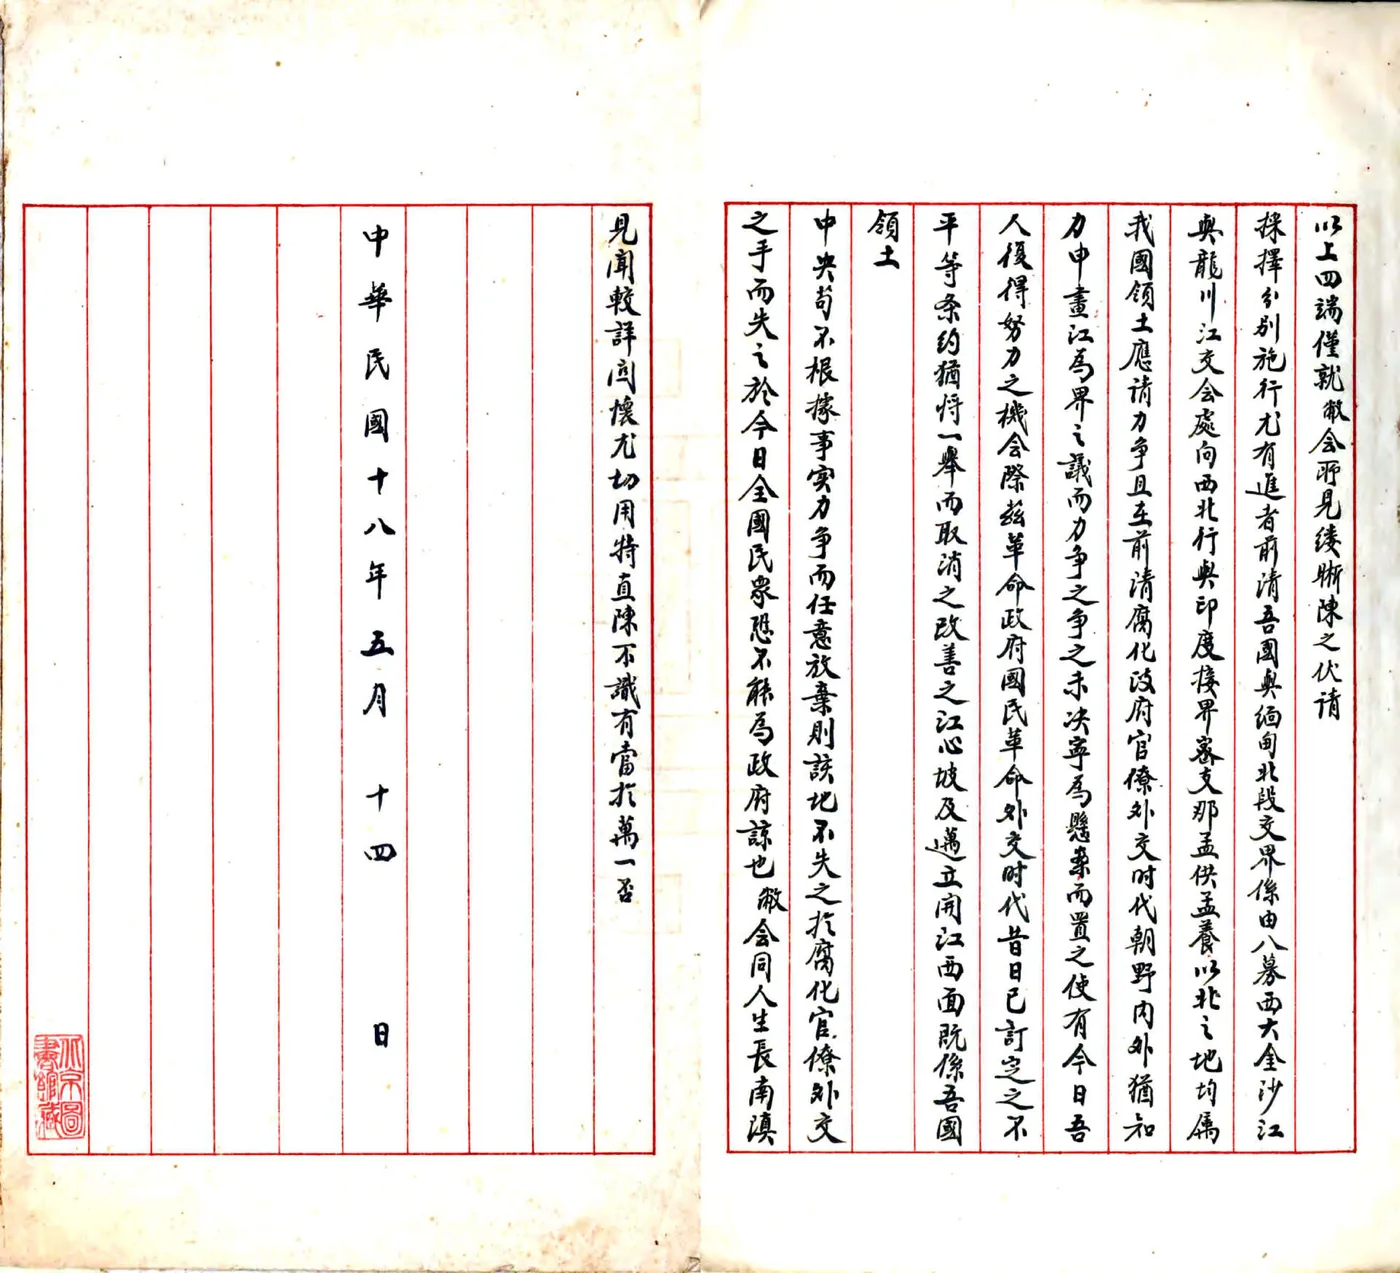 以上四端僅就敝会所見缕晰陳之伏请
採擇分别施行尤有進者前清吾國與缅甸北段交界係由八募西大金沙江
與龍川江交会處向西北行與印度接界密支那孟供孟養以北之地均属
我國領土應请力争且在前清腐化政府官僚外交时代朝野内外猶知
力申畫江為界之議而力争之争之未决寧為懸案而置之使有今日吾
人復得努力之機会際兹革命政府國民革命外交时代昔日已訂定之不
平等条约猶将一舉而取消之改善之江心坡及邁立開江西面既係吾國
領土
中央苟不根據事实力争而任意放棄則該地不失之於腐化官僚外交
之手而失之於今日全國民衆恐不能為政府諒也敝会同人生長南滇
見聞較詳関懷尤切用特直陳不識有當於萬一否
中華民國十八年五月十四日
北京圖書館藏